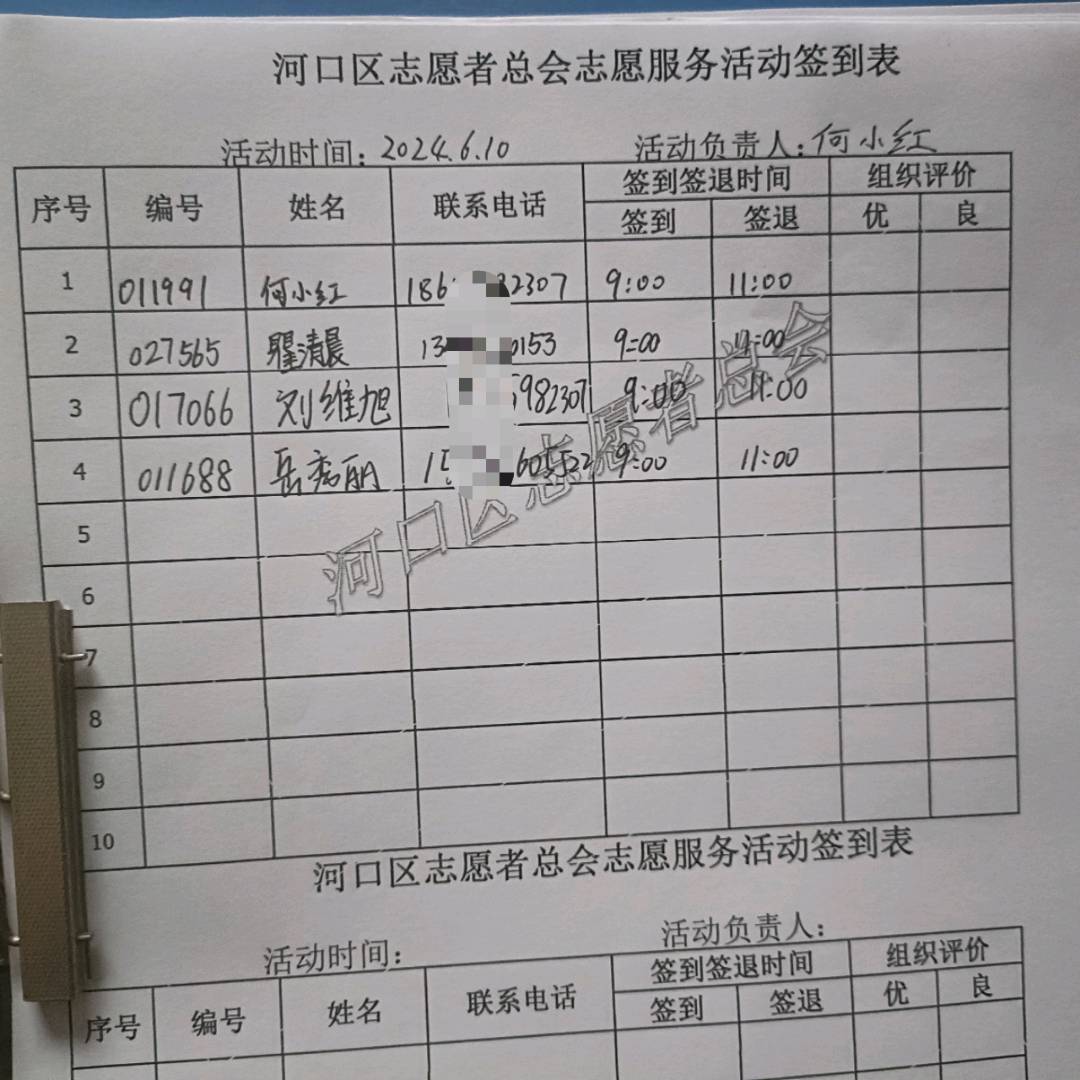 河口区志愿者总会志愿服务活动签到表
活动时间：2024.6.10 活动负责人：何小红
序号 编号 姓名 联系电话 签到签退时间 组织评价
签到 签退 优 良
1 011991 何小红 186 82307 9:00 11:00
2 027565 瞿清晨 13 0153 9:00 11:00
3 017066 刘维旭 5982307 9:00 11:00
4 011688 岳秀丽 15 605522 9:00 11:00
5
6
7
8
9
10
河口区志愿者总会
河口区志愿者总会志愿服务活动签到表
活动时间： 活动负责人：
序号 编号 姓名 联系电话 签到签退时间 组织评价
签到 签退 优 良